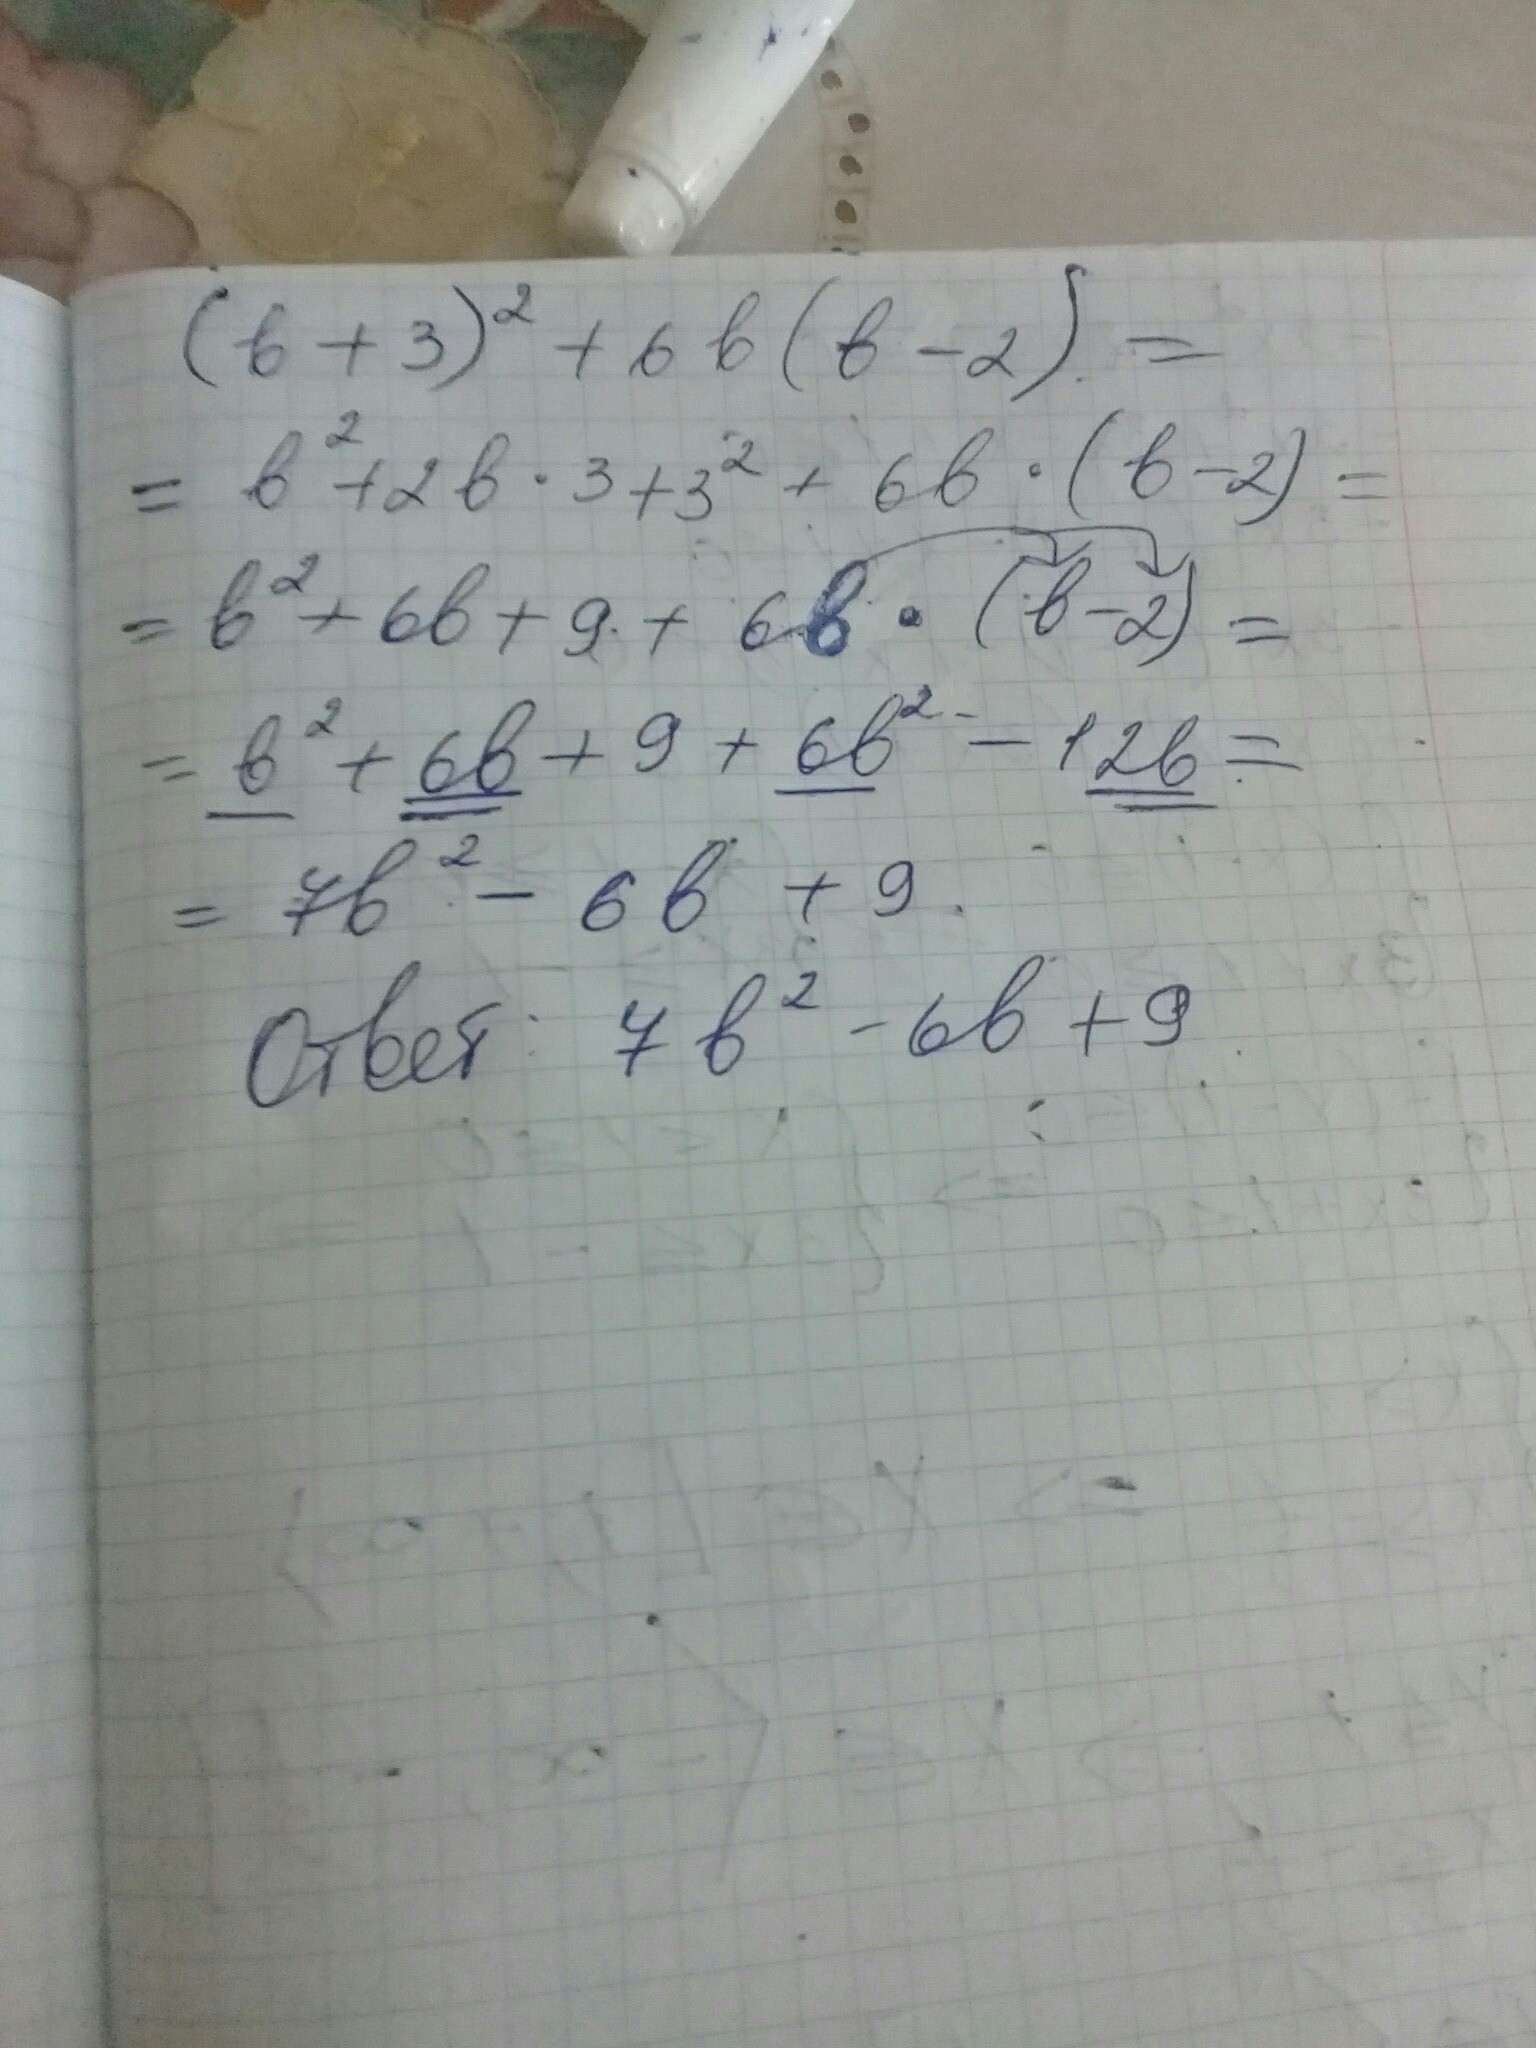 (b + 3)² + 6b(b - 2) =
= b² + 2b · 3 + 3² + 6b · (b - 2) =
= b² + 6b + 9 + 6b · (b - 2) =
= b² + 6b + 9 + 6b² - 12b =
= 7b² - 6b + 9.
Ответ: 7b² - 6b + 9